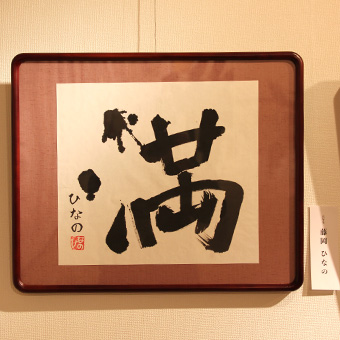 満
ひなの
藤岡 ひなの